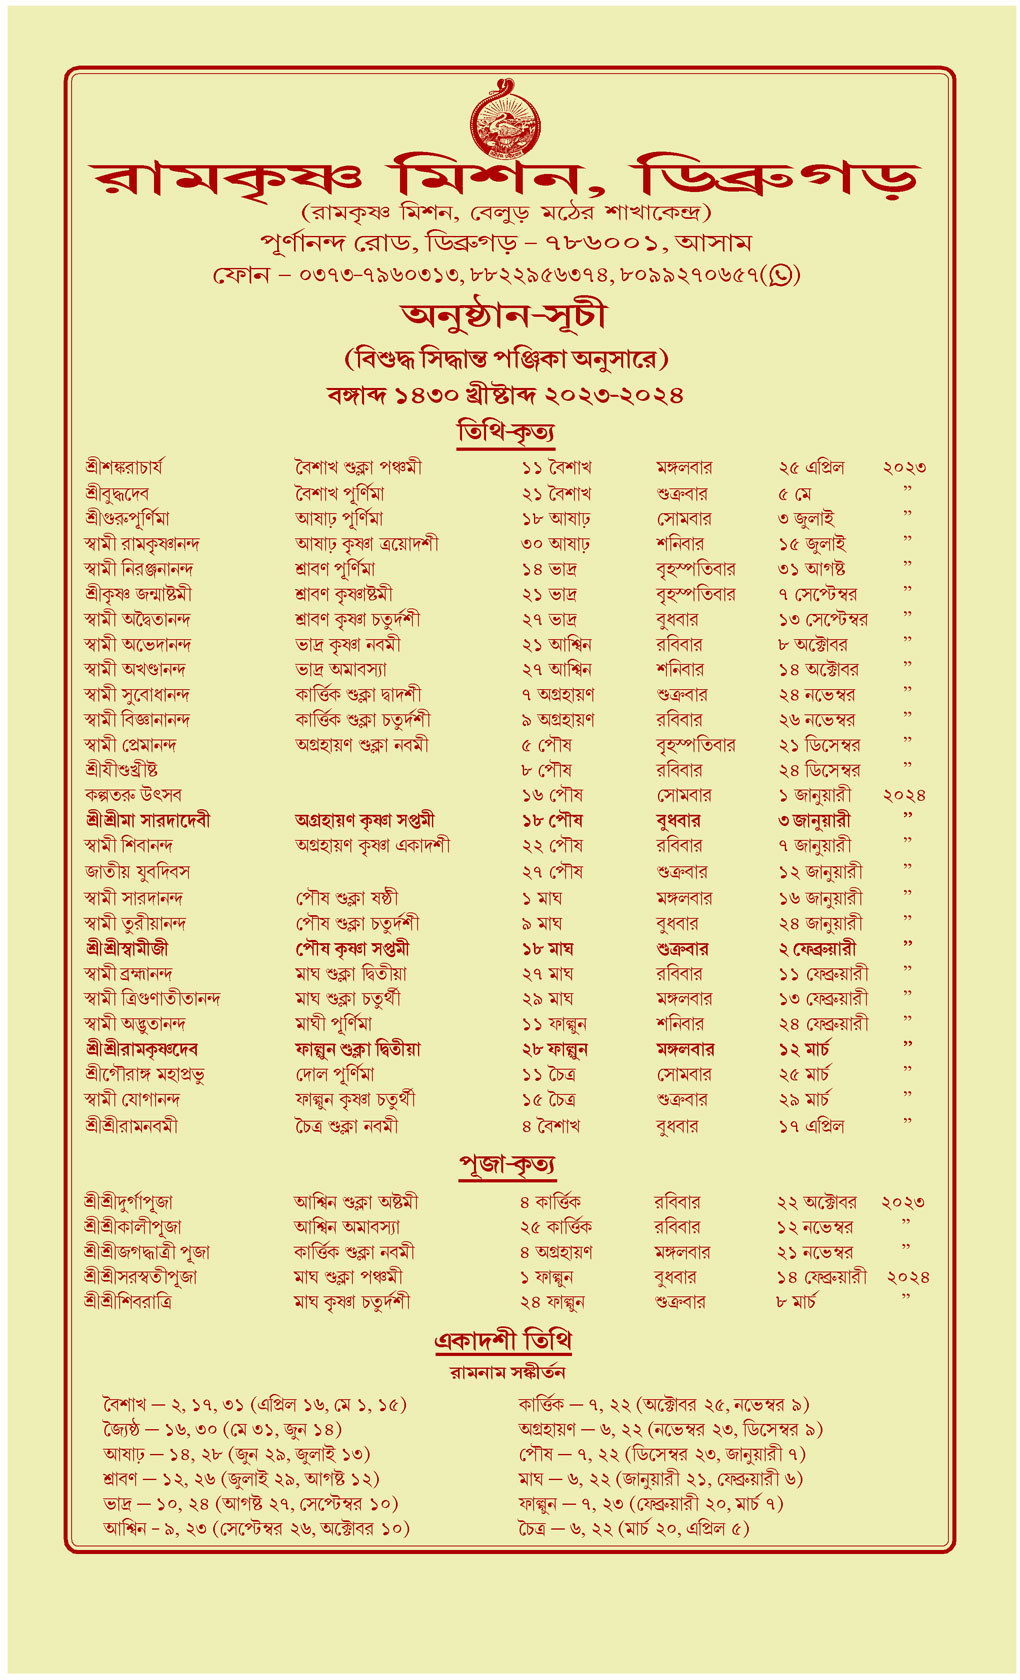 রামকৃষ্ণ মিশন, ডিব্রুগড়
(রামকৃষ্ণ মিশন, বেলুড় মঠের শাখাকেন্দ্র)
পূর্ণানন্দ রোড, ডিব্রুগড় – ৭৮৬০০১, আসাম
ফোন – ০৩৭৩-৭৯৬০৩১৩, ৮৮২২৯৫৬৩৭৪, ৮০৯৯২৭০৬৫৭()
অনুষ্ঠান-সূচী
(বিশুদ্ধ সিদ্ধান্ত পঞ্জিকা অনুসারে)
বঙ্গাব্দ ১৪৩০ খ্রীষ্টাব্দ ২০২৩-২০২৪
তিথি-কৃত্য
শ্রীশঙ্করাচার্য বৈশাখ শুক্লা পঞ্চমী ১১ বৈশাখ মঙ্গলবার ২৫ এপ্রিল ২০২৩
শ্রীবুদ্ধদেব বৈশাখ পূর্ণিমা ২১ বৈশাখ শুক্রবার ৫ মে ”
শ্রীগুরুপূর্ণিমা আষাঢ় পূর্ণিমা ১৮ আষাঢ় সোমবার ৩ জুলাই ”
স্বামী রামকৃষ্ণানন্দ আষাঢ় কৃষ্ণা ত্রয়োদশী ৩০ আষাঢ় শনিবার ১৫ জুলাই ”
স্বামী নিরঞ্জনানন্দ শ্রাবণ পূর্ণিমা ১৪ ভাদ্র বৃহস্পতিবার ৩১ আগষ্ট ”
শ্রীকৃষ্ণ জন্মাষ্টমী শ্রাবণ কৃষ্ণাষ্টমী ২১ ভাদ্র বৃহস্পতিবার ৭ সেপ্টেম্বর ”
স্বামী অদ্বৈতানন্দ শ্রাবণ কৃষ্ণা চতুর্দশী ২৭ ভাদ্র বুধবার ১৩ সেপ্টেম্বর ”
স্বামী অভেদানন্দ ভাদ্র কৃষ্ণা নবমী ২১ আশ্বিন রবিবার ৮ অক্টোবর ”
স্বামী অখণ্ডানন্দ ভাদ্র অমাবস্যা ২৭ আশ্বিন শনিবার ১৪ অক্টোবর ”
স্বামী সুবোধানন্দ কার্ত্তিক শুক্লা দ্বাদশী ৭ অগ্রহায়ণ শুক্রবার ২৪ নভেম্বর ”
স্বামী বিজ্ঞানানন্দ কার্ত্তিক শুক্লা চতুর্দশী ৯ অগ্রহায়ণ রবিবার ২৬ নভেম্বর ”
স্বামী প্রেমানন্দ অগ্রহায়ণ শুক্লা নবমী ৫ পৌষ বৃহস্পতিবার ২১ ডিসেম্বর ”
শ্রীযীশুখ্রীষ্ট ৮ পৌষ রবিবার ২৪ ডিসেম্বর ”
কল্পতরু উৎসব ১৬ পৌষ সোমবার ১ জানুয়ারী ২০২৪
শ্রীশ্রীমা সারদাদেবী অগ্রহায়ণ কৃষ্ণা সপ্তমী ১৮ পৌষ বুধবার ৩ জানুয়ারী ”
স্বামী শিবানন্দ অগ্রহায়ণ কৃষ্ণা একাদশী ২২ পৌষ রবিবার ৭ জানুয়ারী ”
জাতীয় যুবদিবস ২৭ পৌষ শুক্রবার ১২ জানুয়ারী ”
স্বামী সারদানন্দ পৌষ শুক্লা ষষ্ঠী ১ মাঘ মঙ্গলবার ১৬ জানুয়ারী ”
স্বামী তুরীয়ানন্দ পৌষ শুক্লা চতুর্দশী ৯ মাঘ বুধবার ২৪ জানুয়ারী ”
শ্রীশ্রীস্বামীজী পৌষ কৃষ্ণা সপ্তমী ১৮ মাঘ শুক্রবার ২ ফেব্রুয়ারী ”
স্বামী ব্রহ্মানন্দ মাঘ শুক্লা দ্বিতীয়া ২৭ মাঘ রবিবার ১১ ফেব্রুয়ারী ”
স্বামী ত্রিগুণাতীতানন্দ মাঘ শুক্লা চতুর্থী ২৯ মাঘ মঙ্গলবার ১৩ ফেব্রুয়ারী ”
স্বামী অদ্ভুতানন্দ মাঘী পূর্ণিমা ১১ ফাল্গুন শনিবার ২৪ ফেব্রুয়ারী ”
শ্রীশ্রীরামকৃষ্ণদেব ফাল্গুন শুক্লা দ্বিতীয়া ২৮ ফাল্গুন মঙ্গলবার ১২ মার্চ ”
শ্রীগৌরাঙ্গ মহাপ্রভু দোল পূর্ণিমা ১১ চৈত্র সোমবার ২৫ মার্চ ”
স্বামী যোগানন্দ ফাল্গুন কৃষ্ণা চতুর্থী ১৫ চৈত্র শুক্রবার ২৯ মার্চ ”
শ্রীশ্রীরামনবমী চৈত্র শুক্লা নবমী ৪ বৈশাখ বুধবার ১৭ এপ্রিল ”
পূজা-কৃত্য
শ্রীশ্রীদুর্গাপূজা আশ্বিন শুক্লা অষ্টমী ৪ কার্ত্তিক রবিবার ২২ অক্টোবর ২০২৩
শ্রীশ্রীকালীপূজা আশ্বিন অমাবস্যা ২৫ কার্ত্তিক রবিবার ১২ নভেম্বর ”
শ্রীশ্রীজগদ্ধাত্রী পূজা কার্ত্তিক শুক্লা নবমী ৪ অগ্রহায়ণ মঙ্গলবার ২১ নভেম্বর ”
শ্রীশ্রীসরস্বতীপূজা মাঘ শুক্লা পঞ্চমী ১ ফাল্গুন বুধবার ১৪ ফেব্রুয়ারী ২০২৪
শ্রীশ্রীশিবরাত্রি মাঘ কৃষ্ণা চতুর্দশী ২৪ ফাল্গুন শুক্রবার ৮ মার্চ ”
একাদশী তিথি
রামনাম সঙ্কীর্তন
বৈশাখ – ২, ১৭, ৩১ (এপ্রিল ১৬, মে ১, ১৫)
জ্যৈষ্ঠ – ১৬, ৩০ (মে ৩১, জুন ১৪)
আষাঢ় – ১৪, ২৮ (জুন ২৯, জুলাই ১৩)
শ্রাবণ – ১২, ২৬ (জুলাই ২৯, আগষ্ট ১২)
ভাদ্র – ১০, ২৪ (আগষ্ট ২৭, সেপ্টেম্বর ১০)
আশ্বিন - ৯, ২৩ (সেপ্টেম্বর ২৬, অক্টোবর ১০)
কার্ত্তিক – ৭, ২২ (অক্টোবর ২৫, নভেম্বর ৯)
অগ্রহায়ণ – ৬, ২২ (নভেম্বর ২৩, ডিসেম্বর ৯)
পৌষ – ৭, ২২ (ডিসেম্বর ২৩, জানুয়ারী ৭)
মাঘ – ৬, ২২ (জানুয়ারী ২১, ফেব্রুয়ারী ৬)
ফাল্গুন – ৭, ২৩ (ফেব্রুয়ারী ২০, মার্চ ৭)
চৈত্র – ৬, ২২ (মার্চ ২০, এপ্রিল ৫)